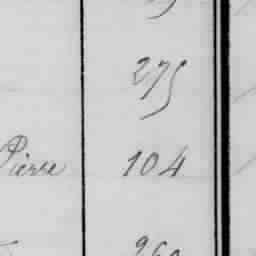 275
Pierre 104